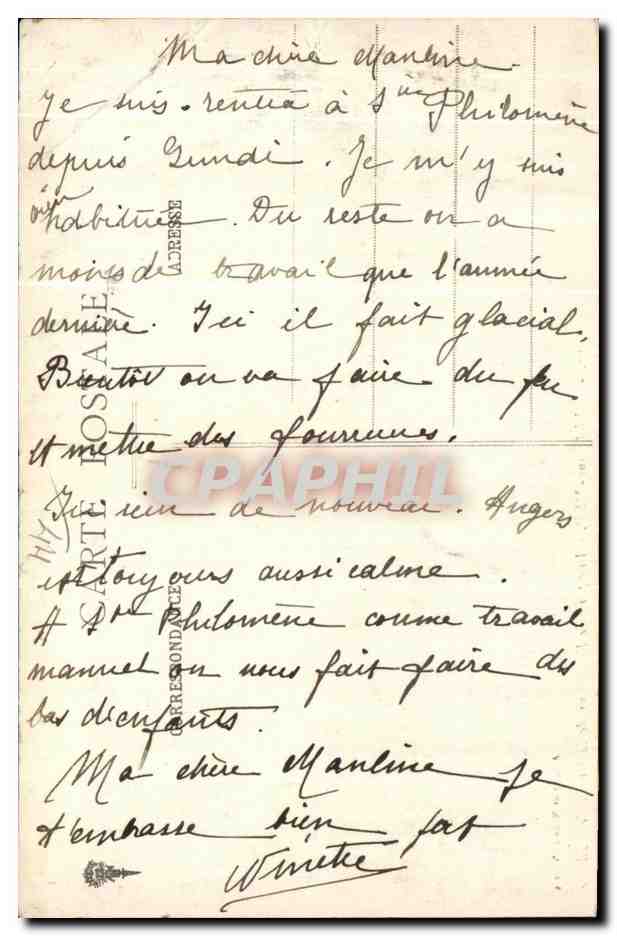 Ma chère Manline.
Je suis rentrée à Ste Philomène
depuis Lundi. Je m'y suis
bien
habituée. Du reste on a
moins de travail que l'année
dernière. Ici il fait glacial.
Bientôt on va faire du feu
et mettre des fourrures.
Ici rien de nouveau. Angers
est toujours aussi calme.
A Ste Philomène comme travail
manuel on nous fait faire des
bas d'enfants.
Ma chère Manline je
t'embrasse bien fort
CARTE POSTALE
ADRESSE
CORRESPONDANCE
44
CPAPHIL